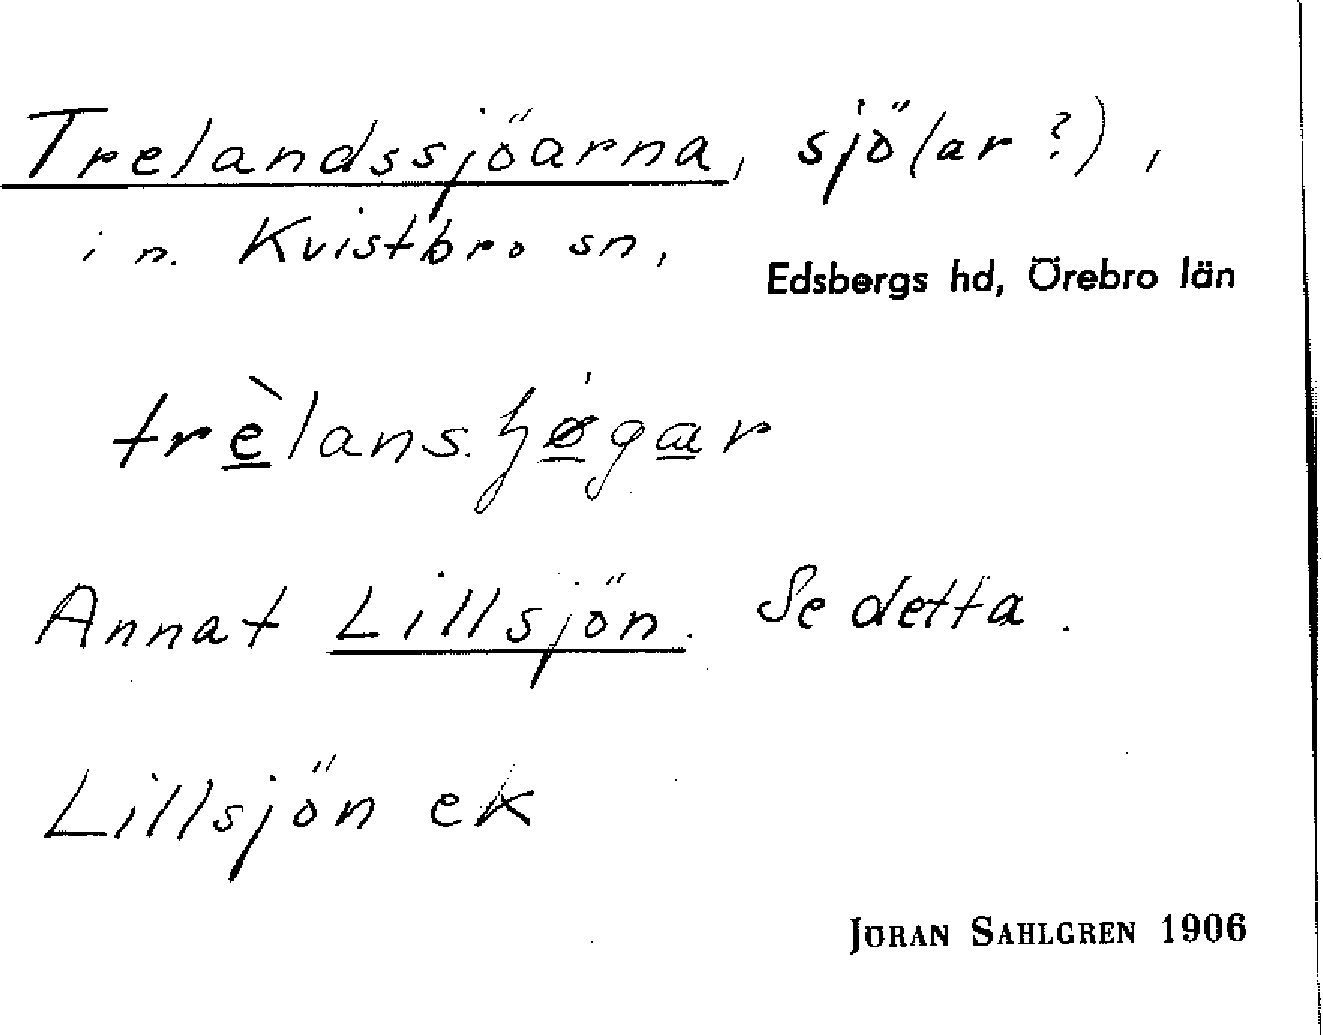 Trelandssjöarna, sjö(ar?),
i n. Kvistbro sn,
Edsbergs hd, Örebro län
Annat Lillsjön. Se detta.
Lillsjön ek
JÖRAN SAHLGREN 1906